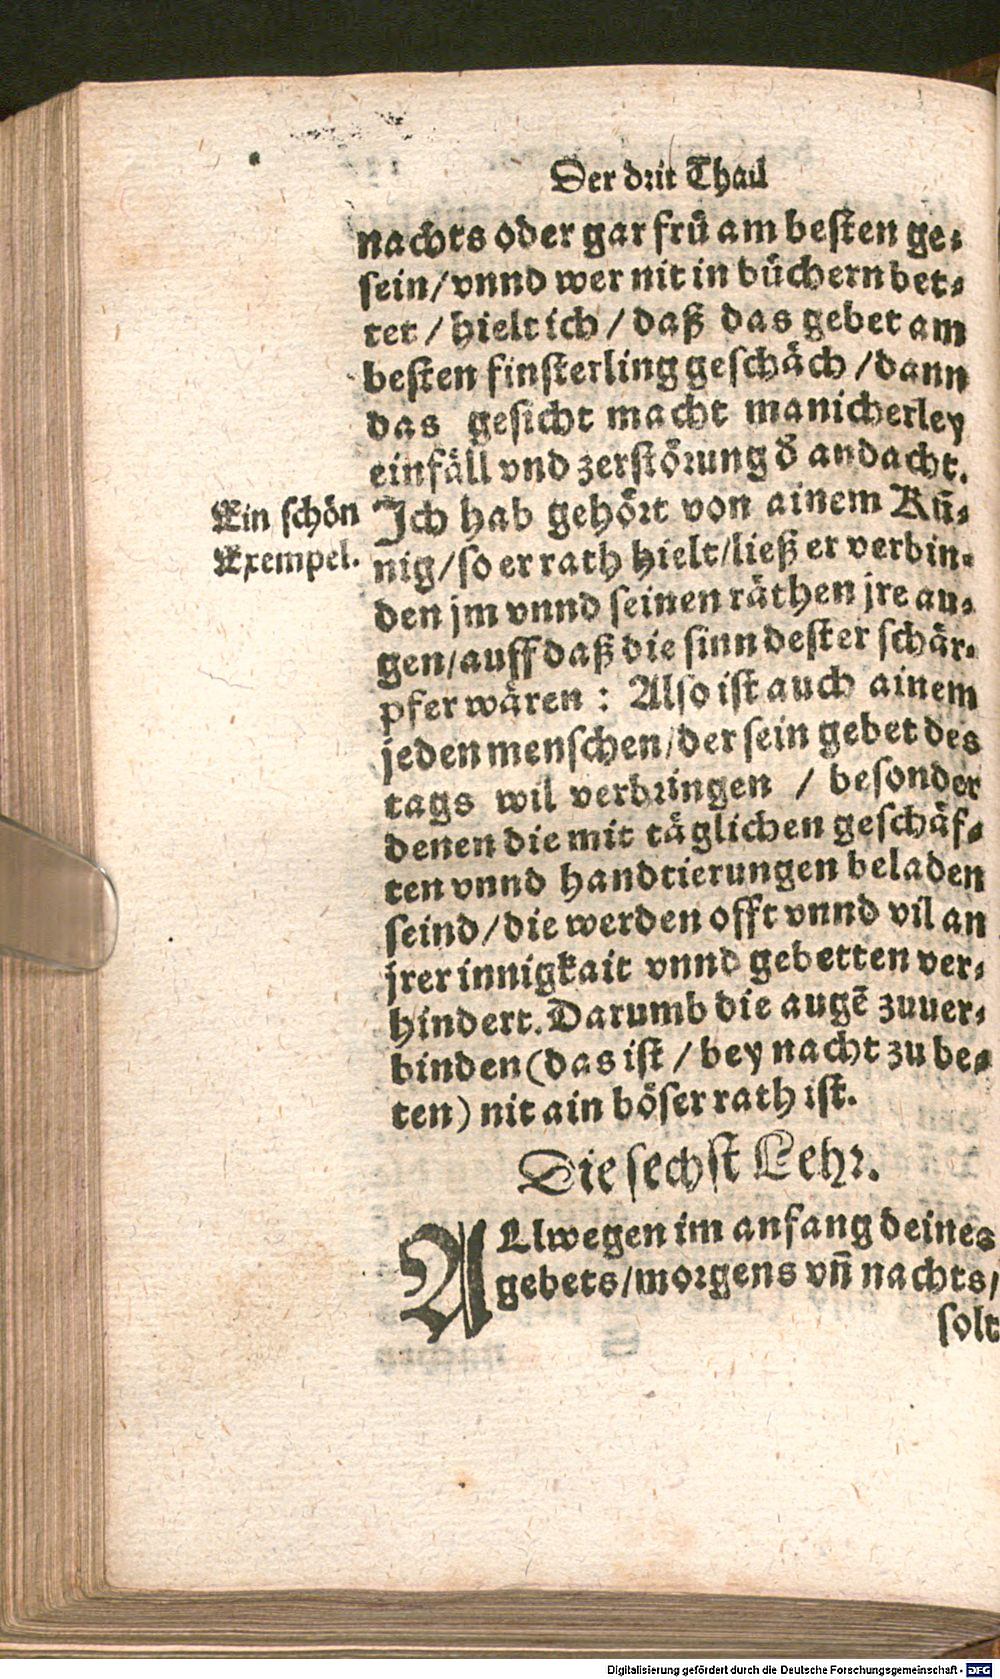 Der drit Thail
nachts oder gar frü am besten ge-
sein/vnnd wer nit in büchern bet-
tet/hielt ich/daß das gebet am
besten finsterling geschäch/dann
das gesicht macht manicherley
einfäll vnd zerstörung d̄ andacht.
Ein schön
Exempel.
Ich hab gehört von ainem Kü-
nig/so er rath hielt/ließ er verbin-
den jm vnnd seinen räthen jre au-
gen/auff daß die sinn dester schär-
pfer wären : Also ist auch ainem
jeden menschen/der sein gebet des
tags wil verbringen / besonder
denen die mit täglichen geschäf-
ten vnnd handtierungen beladen
seind/die werden offt vnnd vil an
jrer innigkait vnnd gebetten ver-
hindert. Darumb die augē zuuer-
binden (das ist / bey nacht zu be-
ten) nit ain böser rath ist.
Die sechst Lehr.
ALlwegen im anfang deines
gebets/morgens vñ nachts/
solt
Digitalisierung gefördert durch die Deutsche Forschungsgemeinschaft - DFG